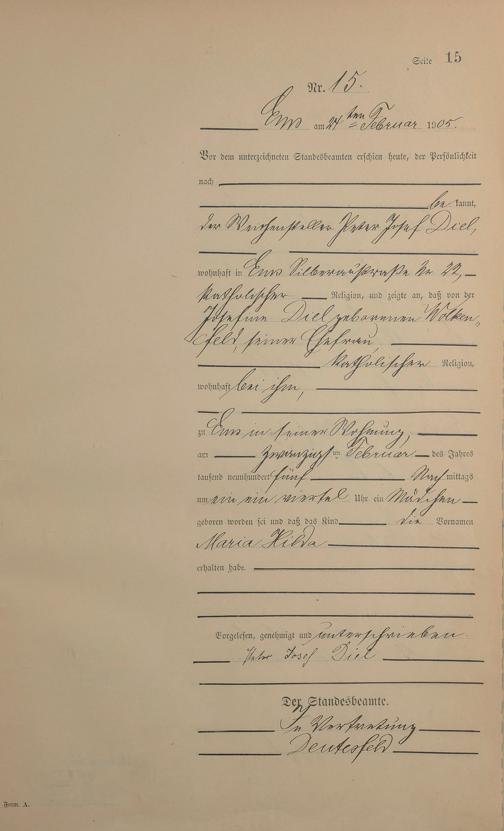 Seite 15
Nr. 15.
Ems am 24ten Februar 1905.
Vor dem unterzeichneten Standesbeamten erschien heute, der Persönlichkeit
nach
be kannt,
der Weichensteller Peter Josef Diel,
wohnhaft in Ems Silberaustraße Nr 22,
katholischer Religion, und zeigte an, daß von der
Josefine Diel geborenen Wolken-
feld, seiner Ehefrau,
katholischer Religion,
wohnhaft bei ihm,
zu Ems in seiner Wohnung,
am zwanzigsten Februar des Jahres
tausend neunhundert fünf Nachmittags
um ein ein viertel Uhr ein Mädchen
geboren worden sei und daß das Kind die Vornamen
Maria Hilda
erhalten habe.
Vorgelesen, genehmigt und unterschrieben
Peter Josef Diel
Der Standesbeamte.
In Vertretung
Deutesfeld
Form. A.